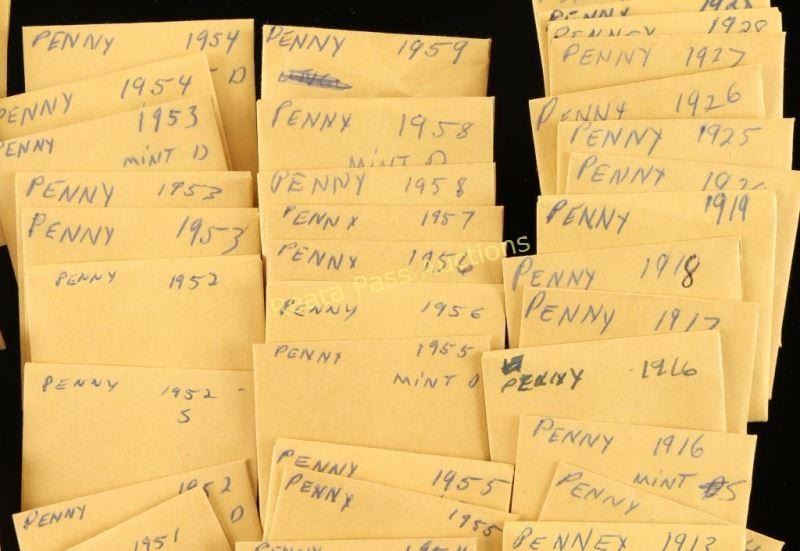 PENNY 1954
D
PENNY 1954
PENNY 1953
MINT D
PENNY 1953
PENNY 1953
PENNY 1952
PENNY 1952
S
PENNY 1952
D
1951
PENNY 1959
PENNY 1958
MINT D
PENNY 1958
PENNY 1957
PENNY 1956
PENNY 1956
PENNY 1955
MINT D
PENNY 1955
PENNY 1955
Reata Pass Auctions
PENNY 1928
PENNEY 1928
PENNY 1927
PENNY 1926
PENNY 1925
PENNY
PENNY 1919
PENNY 1918
PENNY 1917
PENNY 1916
PENNY 1916
MINT S
PENNY
PENNEY 1913